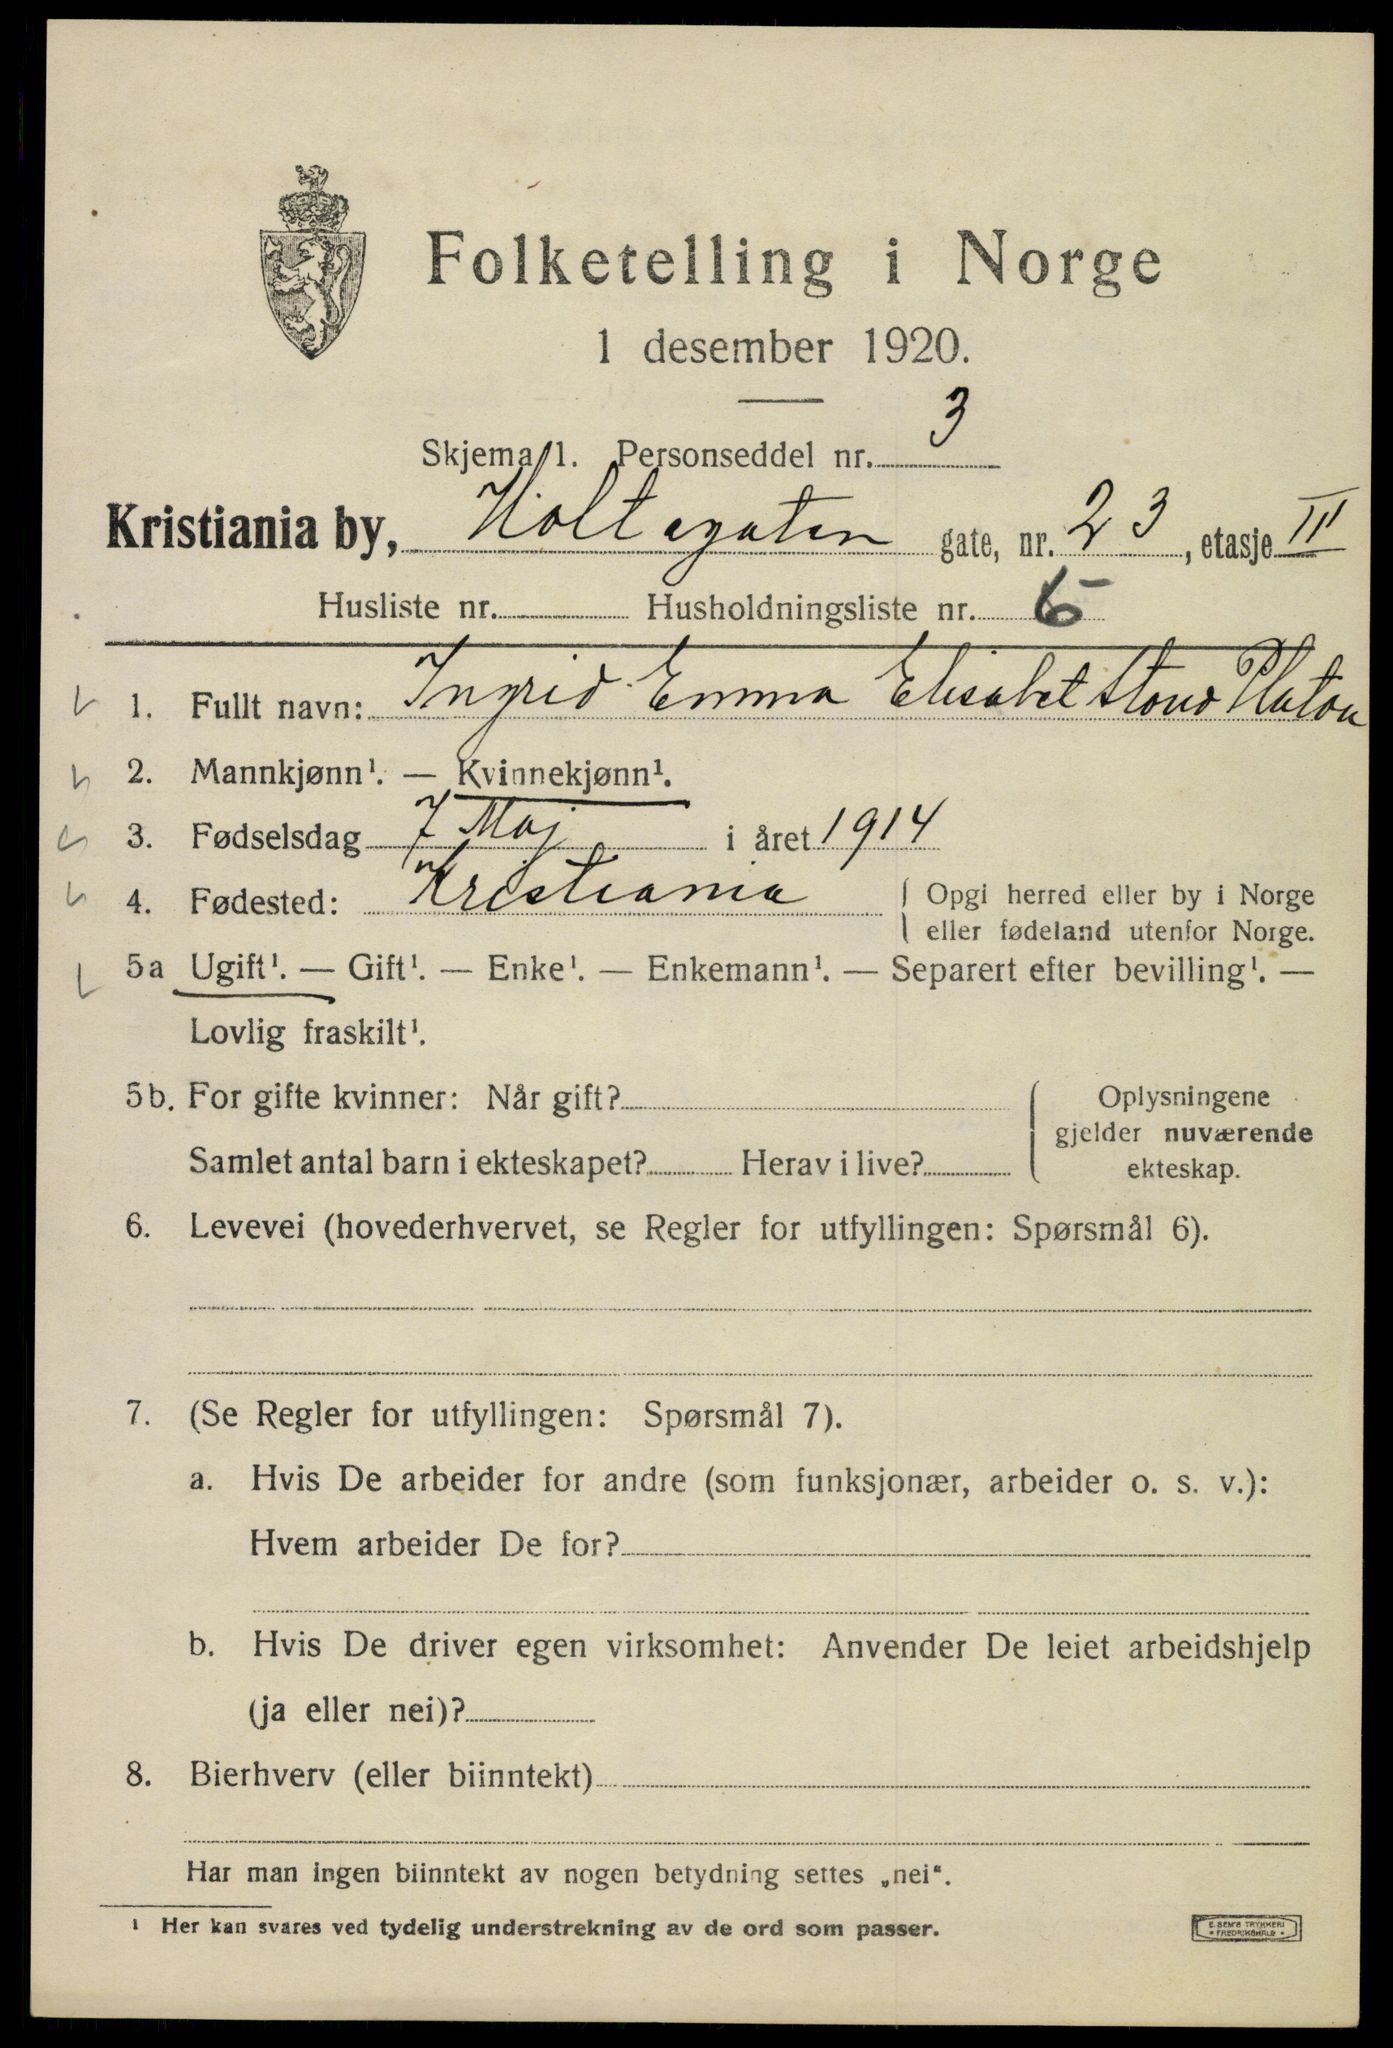 Folketelling i Norge
1 desember 1920.
Skjema 1. Personseddel nr. 3
Kristiania by, Holtegaten gate, nr. 23, etasje III
Husliste nr. Husholdningsliste nr. 6
1. Fullt navn: Ingrid Emma Elisabet Stoud Platou
2. Mannkjønn¹. — Kvinnekjønn¹.
3. Fødselsdag 7 Maj i året 1914
4. Fødested: Kristiania { Opgi herred eller by i Norge
eller fødeland utenfor Norge.
5a Ugift¹. — Gift¹. — Enke¹. — Enkemann¹. — Separert efter bevilling¹. —
Lovlig fraskilt¹.
5b. For gifte kvinner: Når gift? { Oplysningene
gjelder nuværende
Samlet antal barn i ekteskapet? Herav i live? ekteskap.
6. Levevei (hovederhvervet, se Regler for utfyllingen: Spørsmål 6).
7. (Se Regler for utfyllingen: Spørsmål 7).
a. Hvis De arbeider for andre (som funksjonær, arbeider o. s. v.):
Hvem arbeider De for?
b. Hvis De driver egen virksomhet: Anvender De leiet arbeidshjelp
(ja eller nei)?
8. Bierhverv (eller biinntekt)
Har man ingen biinntekt av nogen betydning settes „nei“.
¹ Her kan svares ved tydelig understrekning av de ord som passer.
E. SEM'S TRYKKERI
* FREDRIKSHALD *